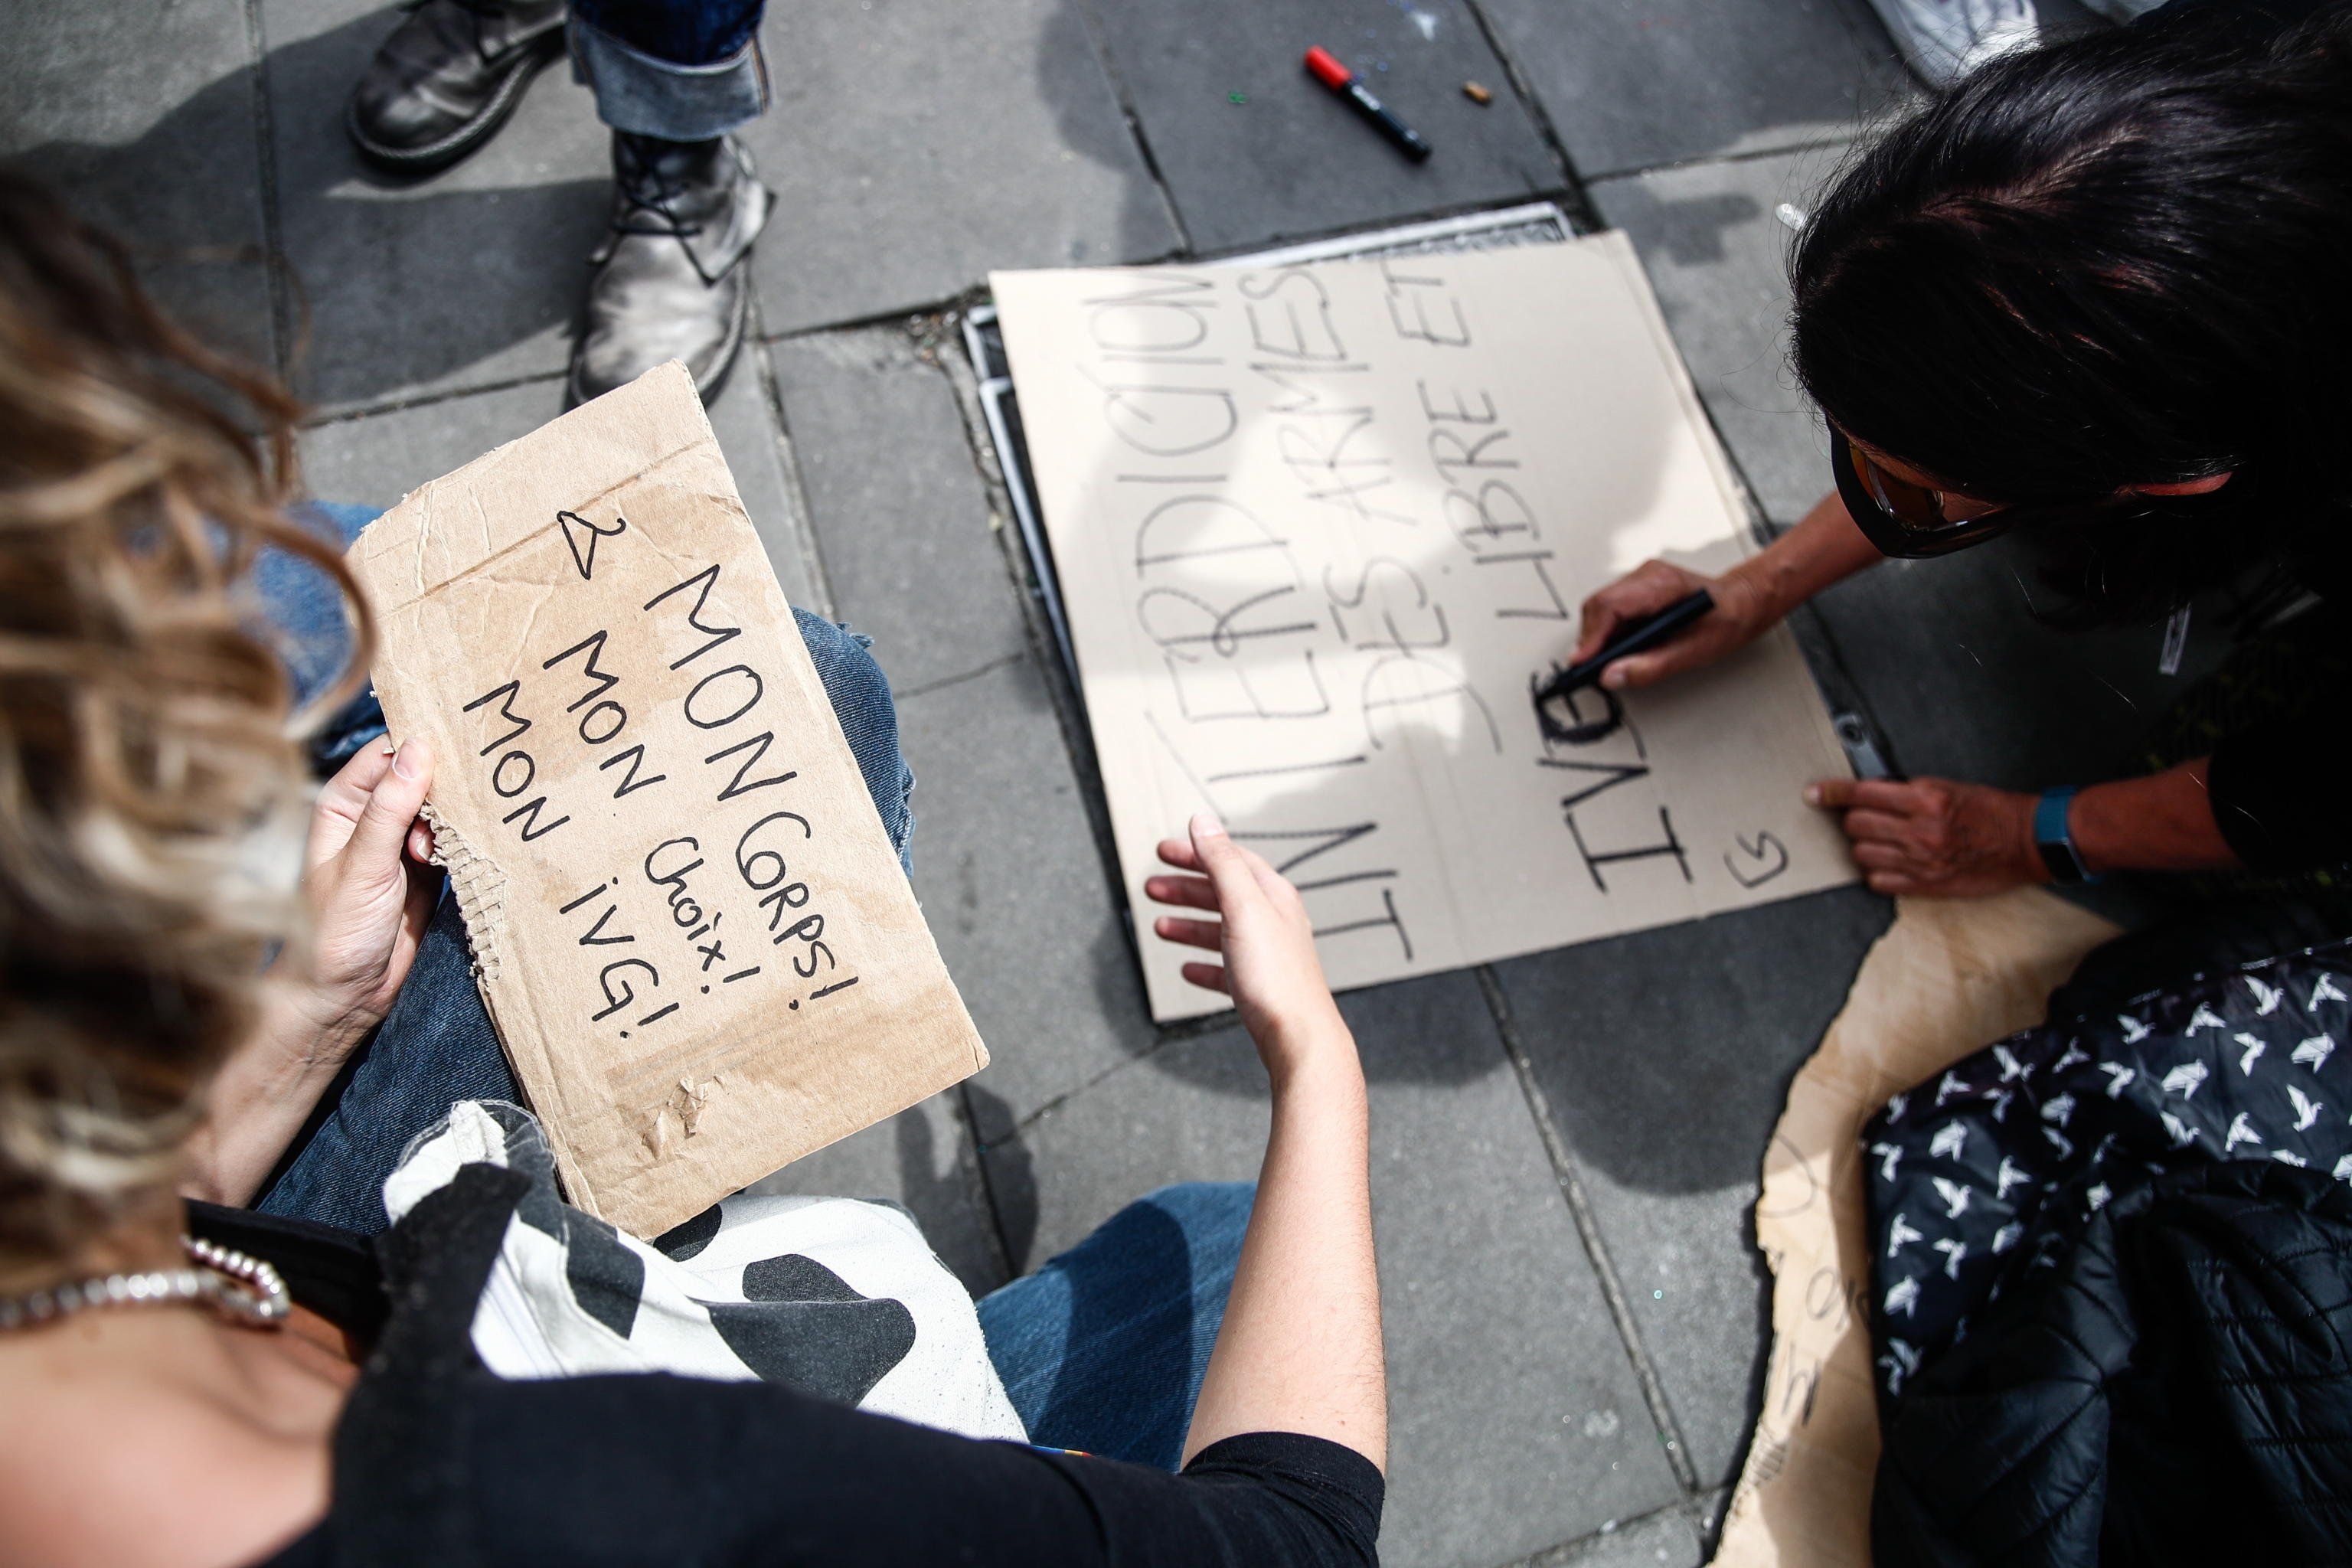 MON CORPS!
& MON Choix!
MON iVG!
INTERDICTION
DES ARMES
IVG LIBRE ET
G